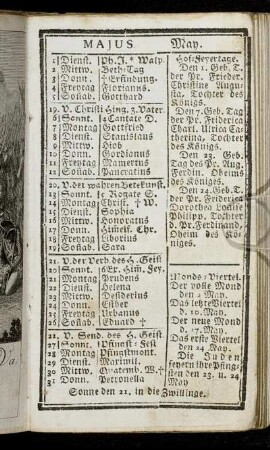 MAJUS May.
1 Dienst. Ph. J. * Walp.
2 Mittw. Beth-Tag
3 Donn. † Erfindung.
4 Freytag Florianus.
5 Soñab. Gotthard
19. V. Christi Hing. z. Vater.
6 Sonnt. 4 Cantate D.
7 Montag Gottfried
8 Dienst. Stanislaus
9 Mittw. Hiob
10 Donn. Gordianus
11 Freytag Mamertus
12 Soñab. Pancratius
20. V. der wahren Betekunst.
13 Sonnt. 5 Rogate S.
14 Montag Christ. † W.
15 Dienst. Sophia
16 Mittw. Honoratus
17 Donn. Himelf. Chr.
18 Freytag Liborius
19 Soñab. Sara
21. V. der Verh. des H. Geist
20 Sonnt. 6 Ex. Him. Fey.
21 Montag Prudens
22 Dienst. Helena
23 Mittw. Desiderius
24 Donn. Esther
25 Freyt. Urbanus
26 Soñab. Eduard †
22. V. Send. des H. Geist
27 Sonnt. Pfingst-Fest
28 Montag Pfingstmont.
29 Dienst. Maximil.
30 Mittw. Quatemb. W. †
31 Donn. Petronella
Hof-Feyertage.
Den 1. Geb. T.
der Pr. Frieder.
Christine Augu-
sta, Tochter des
Königs.
Den 7. Geb. Tag
der Pr. Friderica
Charl. Ulrica Ca-
therina, Tochter
des Königs.
Den 23. Geb.
Tag des Pr. Aug.
Ferdin. Oheims
des Königes.
Den 24. Geb. T.
der Pr. Friderica
Dorothea Louise
Philipp. Tochter
d. Pr. Ferdinand,
Oheim des Kö-
niges.
Monds-Viertel.
Der volle Mond
den 2. May.
Das letzte Viertel
d. 10. May.
Der neue Mond
d. 17. May.
Das erste Viertel
den 24. May.
Die Juden
feyern ihre Pfing-
sten den 23. u. 24
May
Sonne den 21. in die Zwillinge.